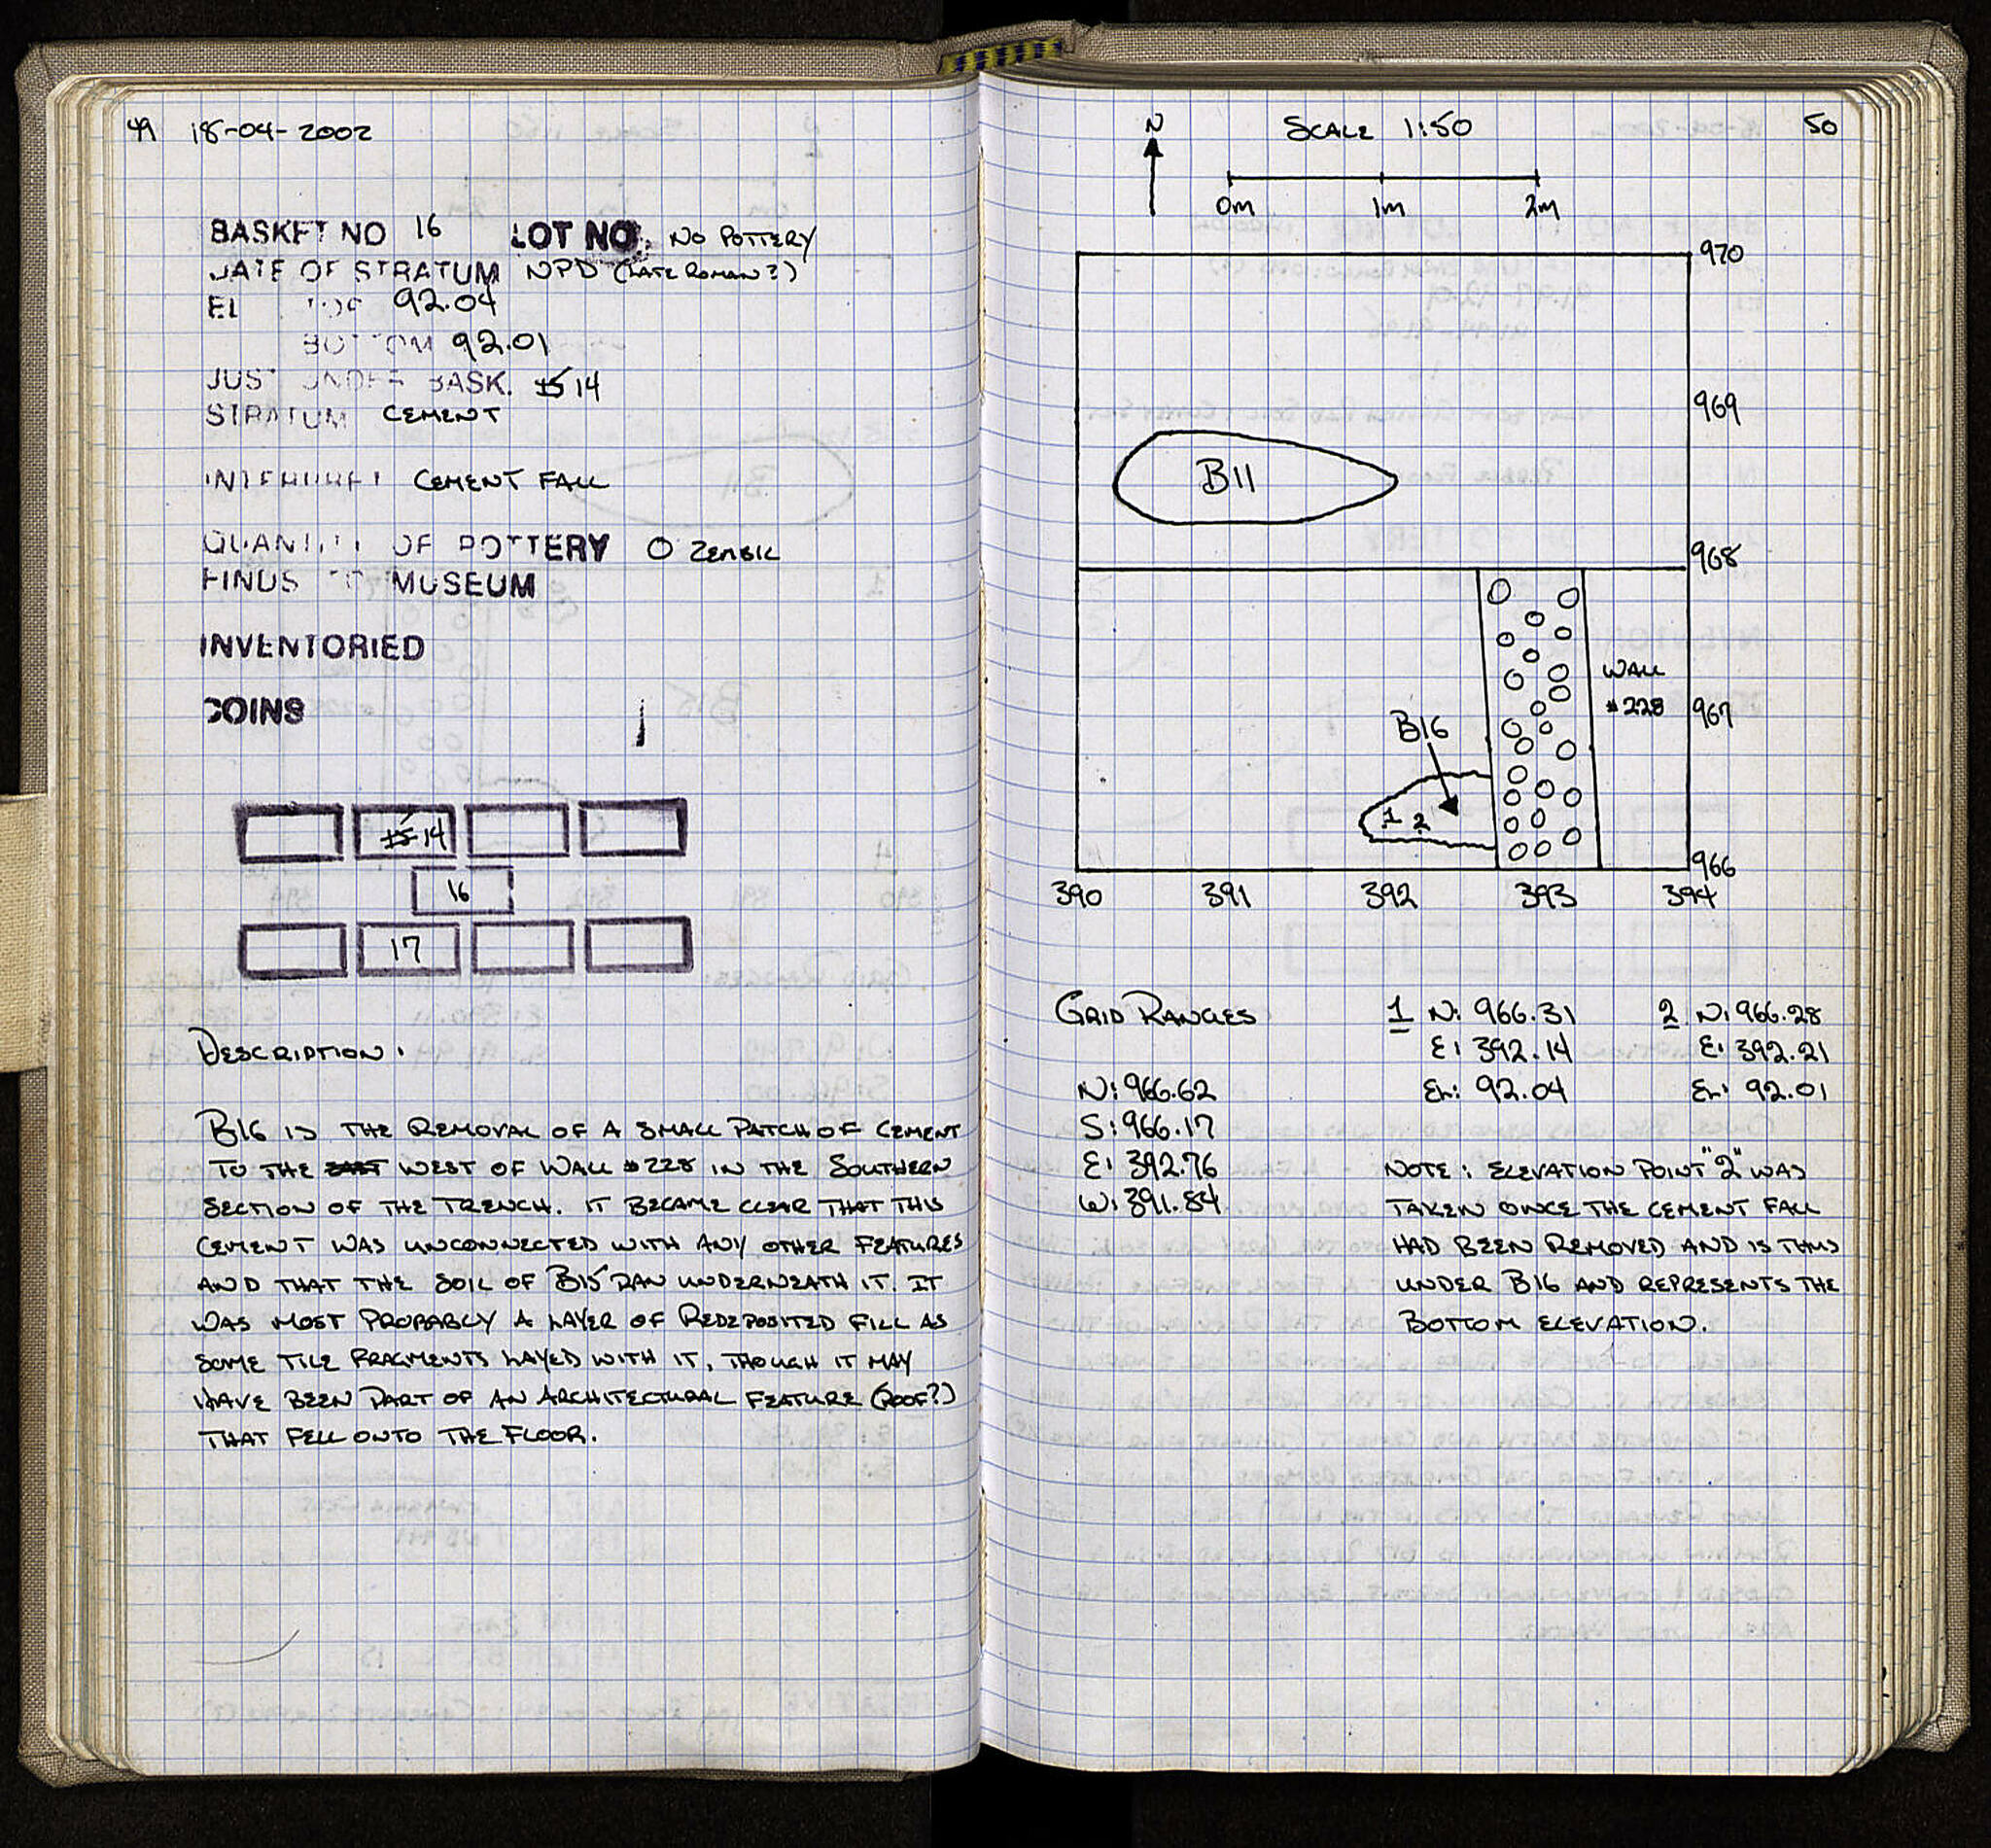 49 18-04-2002
BASKET NO 16 LOT NO. NO POTTERY
DATE OF STRATUM NPD (LATE ROMAN?)
EL TOP 92.04
BOTTOM 92.01
JUST UNDER BASK. 15 14
STRATUM CEMENT
INTERPRET CEMENT FALL
QUANTITY OF POTTERY 0 ZEMBIL
FINDS TO MUSEUM
INVENTORIED
COINS
15 14
16
17
DESCRIPTION:
B16 IS THE REMOVAL OF A SMALL PATCH OF CEMENT
TO THE EAST WEST OF WALL #228 IN THE SOUTHERN
SECTION OF THE TRENCH. IT BECAME CLEAR THAT THIS
CEMENT WAS UNCONNECTED WITH ANY OTHER FEATURES
AND THAT THE SOIL OF B15 RAN UNDERNEATH IT. IT
WAS MOST PROBABLY A LAYER OF REDEPOSITED FILL AS
SOME TILE FRAGMENTS LAYED WITH IT, THOUGH IT MAY
HAVE BEEN PART OF AN ARCHITECTURAL FEATURE (ROOF?)
THAT FELL ONTO THE FLOOR.
N SCALE 1:50 50
0m 1m 2m
970
969
B11
968
WALL
#228
967
B16
1 2
966
390 391 392 393 394
GRID RANGES
N: 966.62
S: 966.17
E: 392.76
W: 391.84
1 N: 966.31
E: 392.14
EL: 92.04
2 N: 966.28
E: 392.21
EL: 92.01
NOTE: ELEVATION POINT "2" WAS
TAKEN ONCE THE CEMENT FALL
HAD BEEN REMOVED AND IS THUS
UNDER B16 AND REPRESENTS THE
BOTTOM ELEVATION.